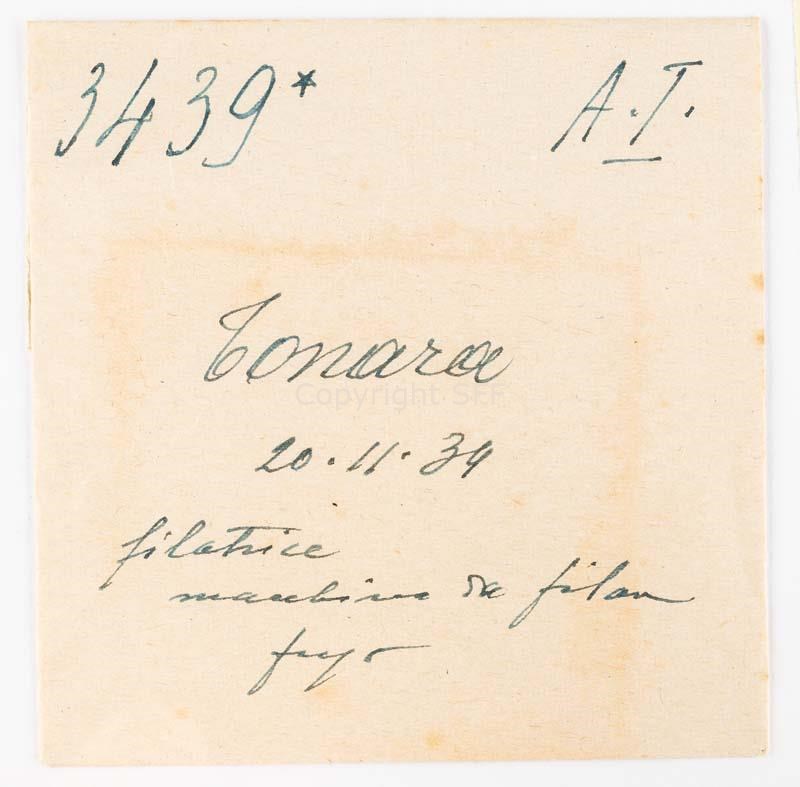 3439* A.T.
Tonara
Copyright SEF
20.11.34
filatrice
macchina da filare
fuso